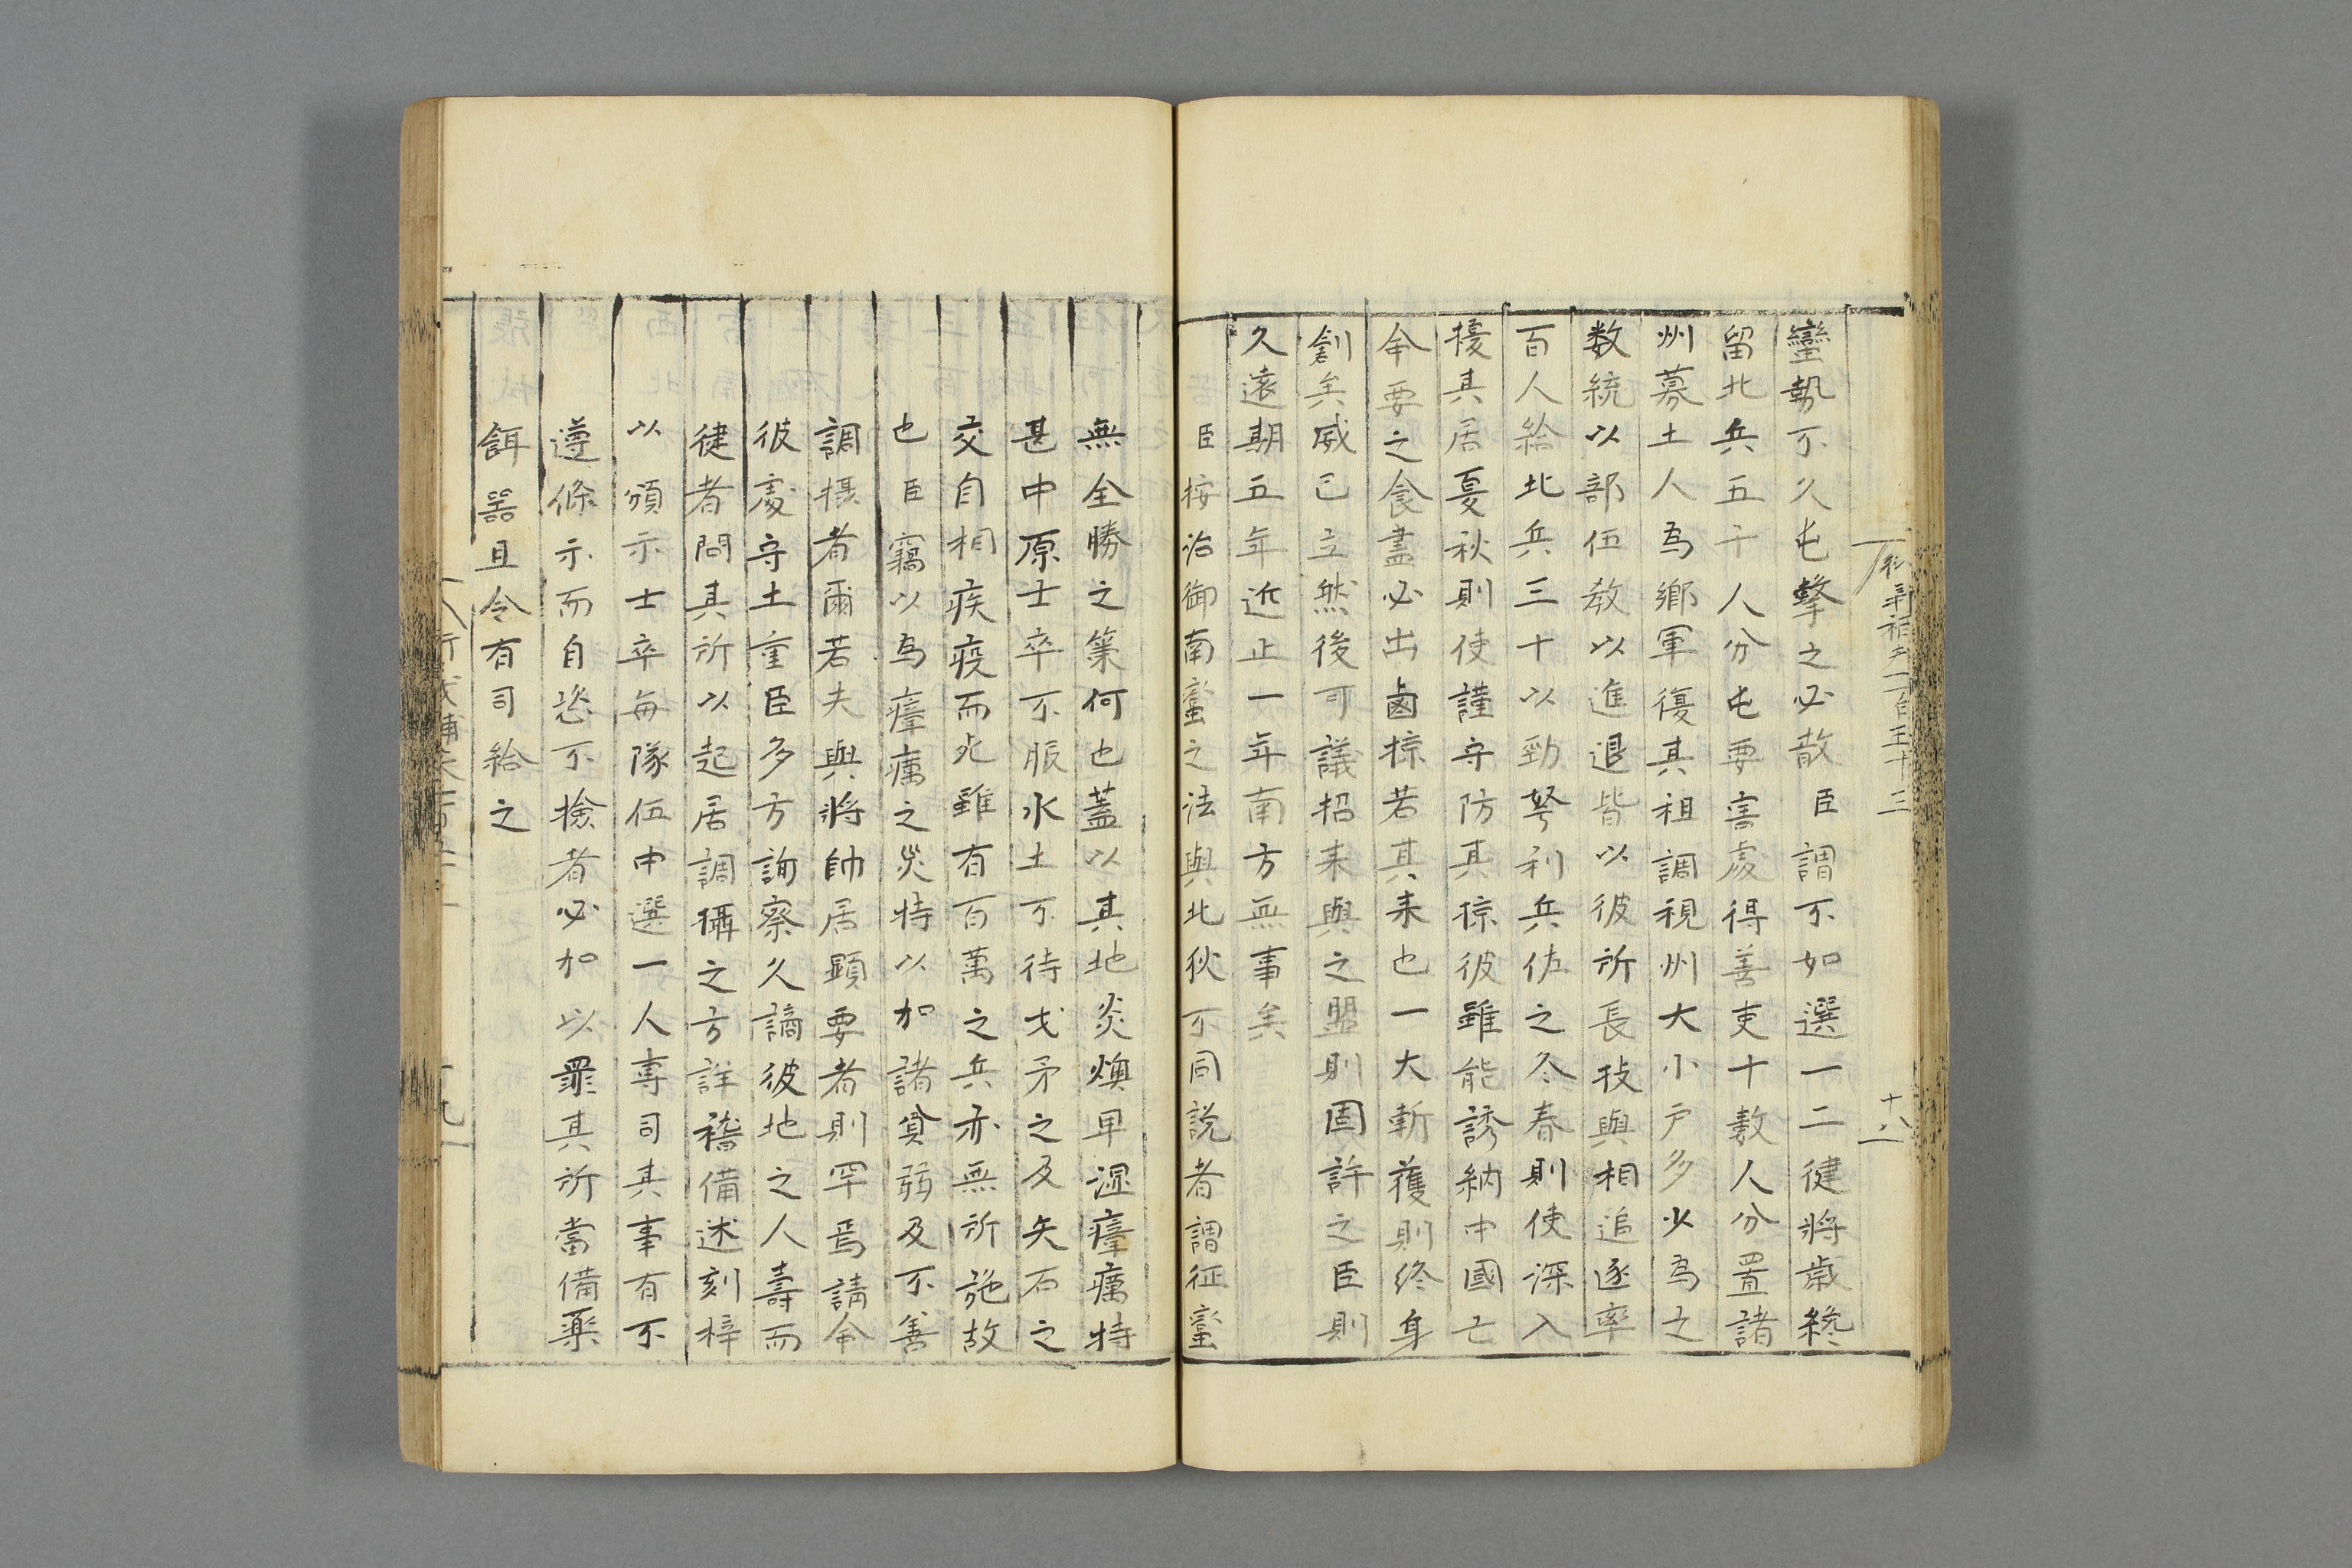 蠻勢不久屯擊之必散臣謂不如選一二健將歲終
留北兵五千人分屯要害處得善吏十數人分置諸
州募土人為鄉軍復其祖調視州大小戶多少為之
数統以部伍教以進退皆以彼所長技與相追逐率
百人給北兵三十以勁弩利兵佐之冬春則使深入
擾其居夏秋則使謹守防其掠彼雖能誘納中國亡
命要之食盡必出鹵掠若其来也一大斬獲則終身
創矣威已立然後可議招来與之盟則固許之臣則
久遠期五年近止一年南方無事矣
臣按治御南蠻之法與北狄不同説者謂征蠻
無全勝之策何也蓋以其地炎燠卑濕瘴癘特
甚中原士卒不服水土不待戈矛之及矢石之
交自相疾疫而死雖有百萬之兵亦無所施故
也臣竊以為瘴癘之災特以加諸貧弱及不善
調摄者爾若夫與將帥居顯要者則罕焉請命
彼處守土重臣多方詢察久謫彼地之人壽而
健者問其所以起居調攝之方詳稽備述刻梓
以頒示士卒每隊伍中選一人專司其事有不
遵條示而自恣不撿者必加以罪其所當備藥
餌器且令有司給之
十八